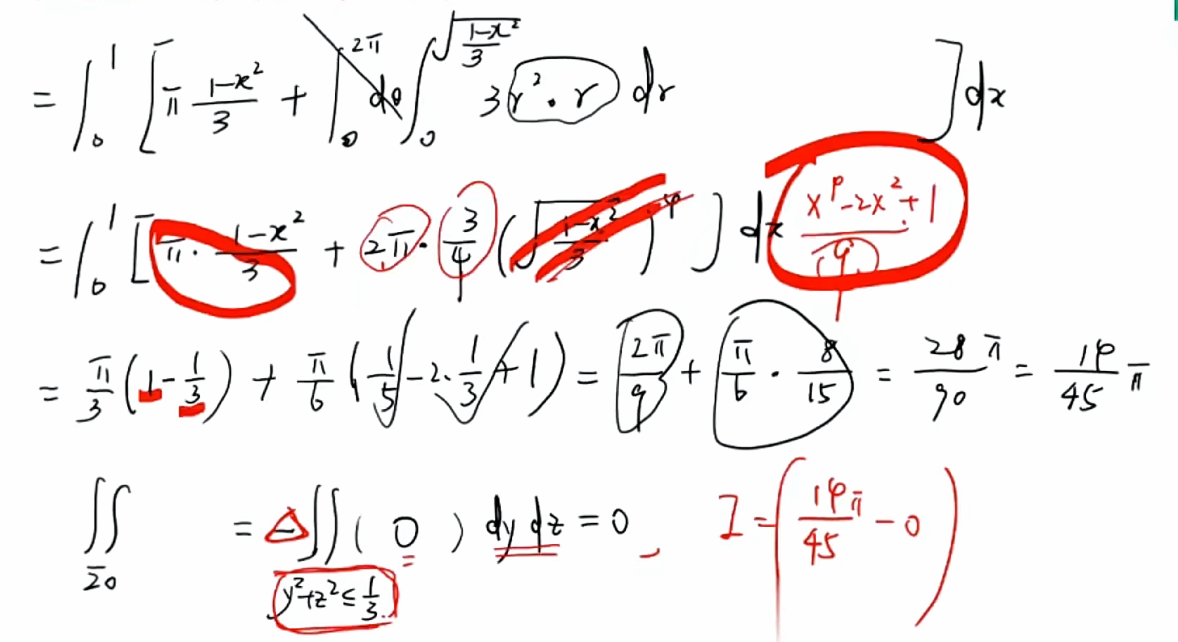 = ∫₀¹ [π (1-x²)/3 + ∫₀^{2π} dθ ∫₀^{√((1-x²)/3)} 3r²·r dr ] dx
= ∫₀¹ [π·(1-x²)/3 + 2π·3/4 (√((1-x²)/3))⁴ ] dx (x⁴-2x²+1)/9
= π/3 (1-1/3) + π/6 (1/5-2·1/3+1) = 2π/9 + π/6 · 8/15 = 28π/90 = 14/45 π
∬_{Σ0} = -∬_{y²+z²≤1/3} ( 0 ) dy dz = 0, I = (14π/45 - 0)